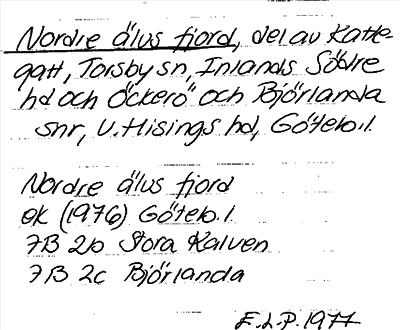 Nordre älvs fjord, del av Katte-
gatt, Torsby sn, Inlands Södre
hd och Öckerö och Björlanda
snr, V. Hisings hd, Göteb. l.
Nordre älvs fjord
ek (1976) Göteb. l.
7B 2b Stora Kalven
7B 2c Björlanda
E.L.P. 1977